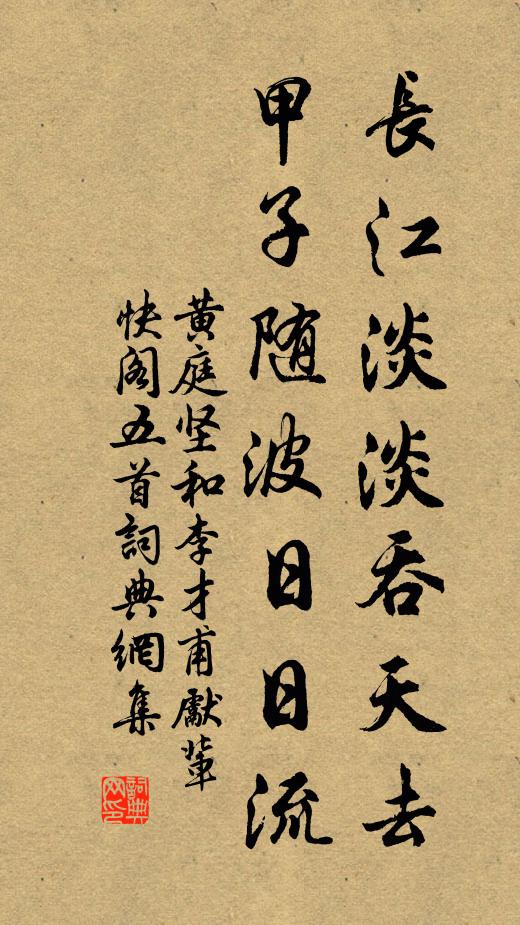 長江淡淡吞天去
甲子随波日日流
黄庭坚和李才甫獻輩
快阁五首詞典網集
詞典网印